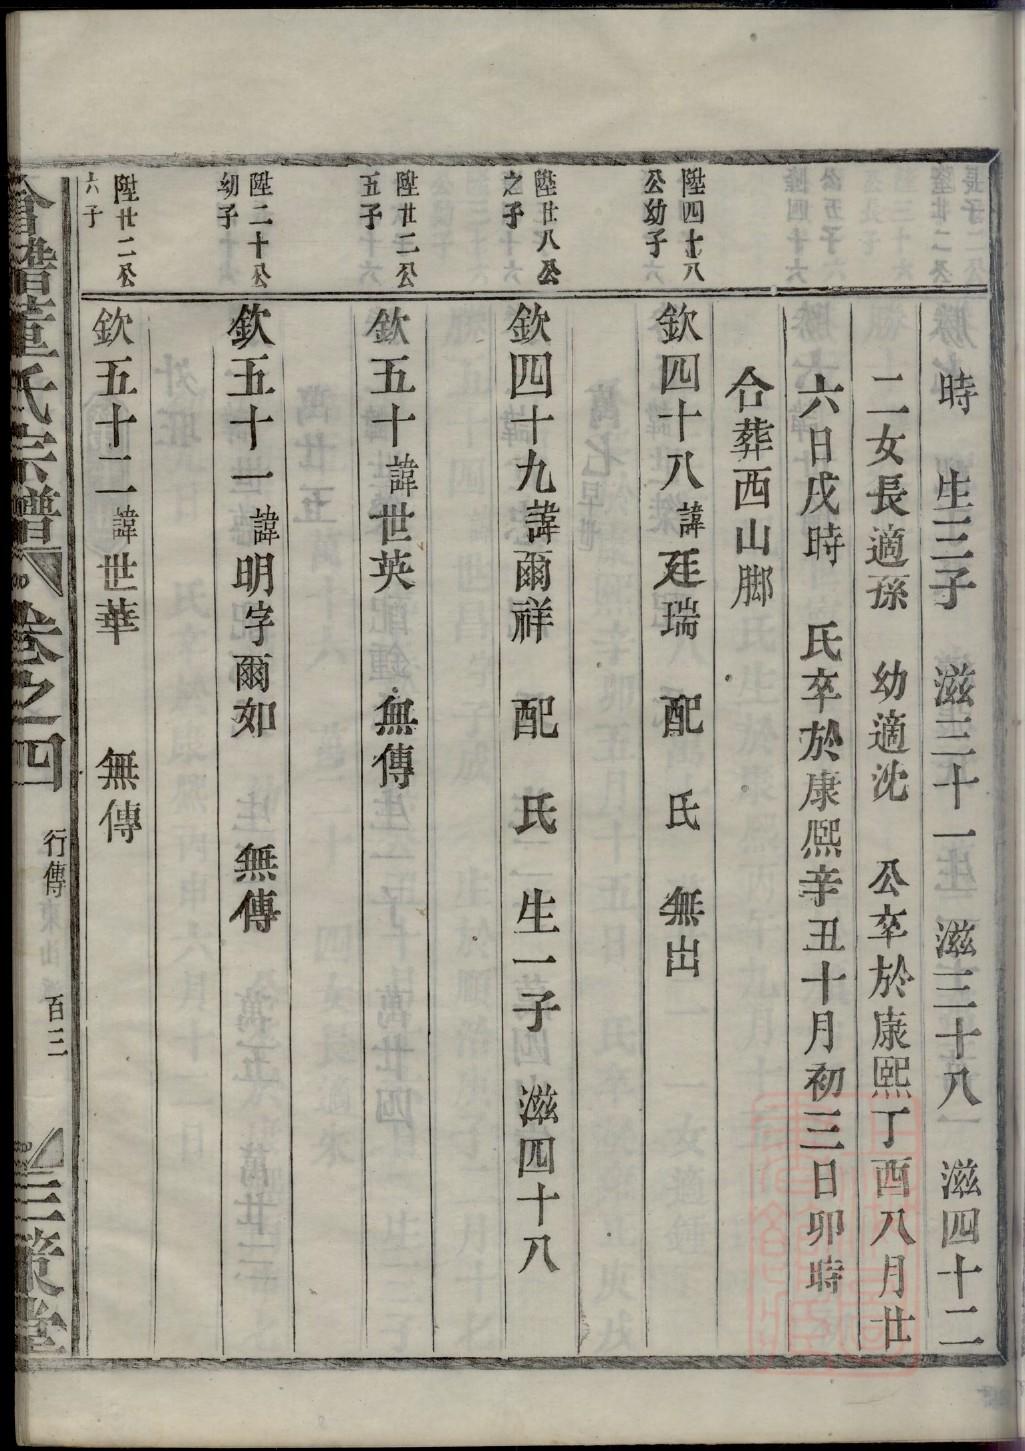 時　生三子　滋三十一　滋三十八　滋四十二
二女長適孫　幼適沈　公卒於康熙丁酉八月廿
六日戌時　氏卒於康熙辛丑十月初三日卯時
合葬西山脚
陞四十八
公幼子
欽四十八諱廷瑞　配　氏　無出
陞廿八公
之子
欽四十九諱爾祥　配　氏　生一子　滋四十八
陞廿二公
五子
欽五十諱世英　無傳
陞二十公
幼子
欽五十一諱明字爾如　無傳
陞廿二公
六子
欽五十二諱世華　無傳
會稽董氏宗譜　卷之四　行傳　百三　三策堂